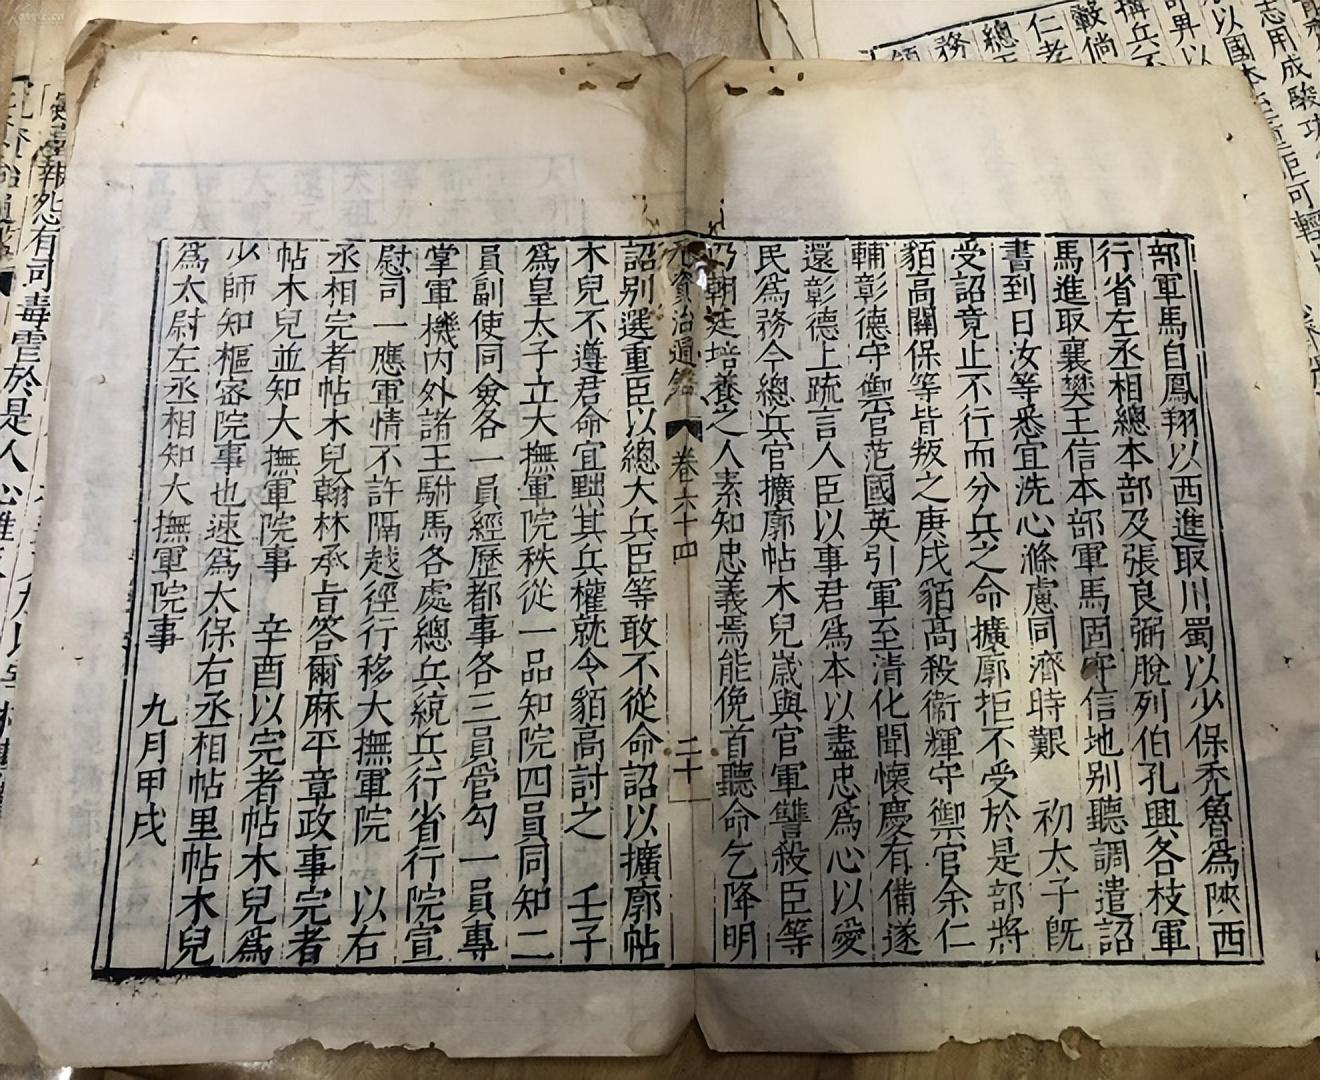 部軍馬自鳳翔以西進取川蜀以少保禿魯為陝西
行省左丞相總本部及張良弼脫列伯孔興各枝軍
馬進取襄樊王信本部軍馬固守信地別聽調遣詔
書到日汝等悉宜洗心滌慮同濟時艱 初太子既
受詔竟止不行而分兵之命擴廓拒不受於是部將
貊高關保等皆叛之庚戌貊高殺衛輝守禦官余仁
輔彰德守禦官范國英引軍至清化聞懷慶有備遂
還彰德上疏言人臣以事君為本以盡忠為心以愛
民為務今總兵官擴廓帖木兒歲與官軍讐殺臣等
乃朝廷培養之人素知忠義焉能俛首聽命乞降明
元資治通鑑 卷六十四 二十
詔別選重臣以總大兵臣等敢不從命詔以擴廓帖
木兒不遵君命宜黜其兵權就令貊高討之 壬子
為皇太子立大撫軍院秩從一品知院四員同知二
員副使同僉各一員經歷都事各三員管勾一員專
掌軍機內外諸王駙馬各處總兵統兵行省行院宣
慰司一應軍情不許隔越徑行移大撫軍院 以右
丞相完者帖木兒翰林承旨答爾麻平章政事完者
帖木兒並知大撫軍院事 辛酉以完者帖木兒為
少師知樞密院事也速為太保右丞相帖里帖木兒
為太尉左丞相知大撫軍院事 九月甲戌
報怨有司毒霄於是人